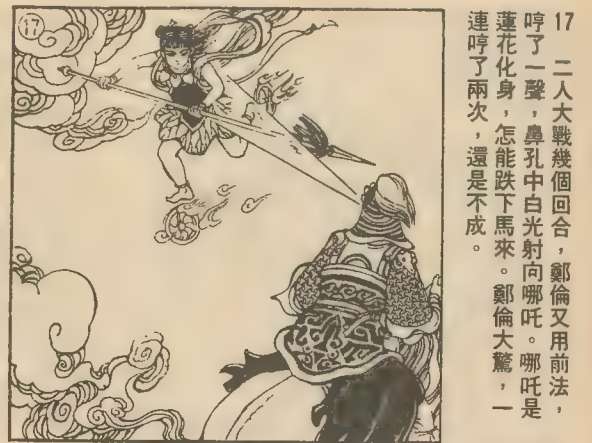 17 二人大戰幾個回合，鄭倫又用前法，
哼了一聲，鼻孔中白光射向哪吒。哪吒是
蓮花化身，怎能跌下馬來。鄭倫大驚，一
連哼了兩次，還是不成。
17